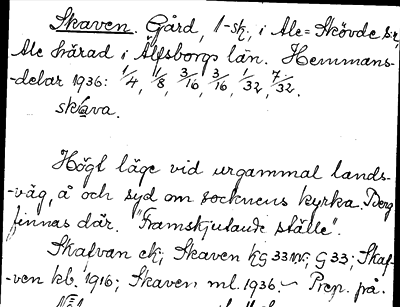 Skaven. Gård, 1-sk, i Ale=Skövde s:n,
Ale härad i Älfsborgs län. Hemmans-
-delar 1936: 1/4, 1/8, 3/16, 3/16, 1/32, 7/32.
skava.
Högt läge vid urgammal lands-
-väg, å och syd om socknens kyrka. Berg
finnas där. "Framskjutande ställe".
Skafvan ek; Skaven kg 33 G 33; Skaf-
-ven kb. 1916; Skaven ml. 1936. Prep. på.